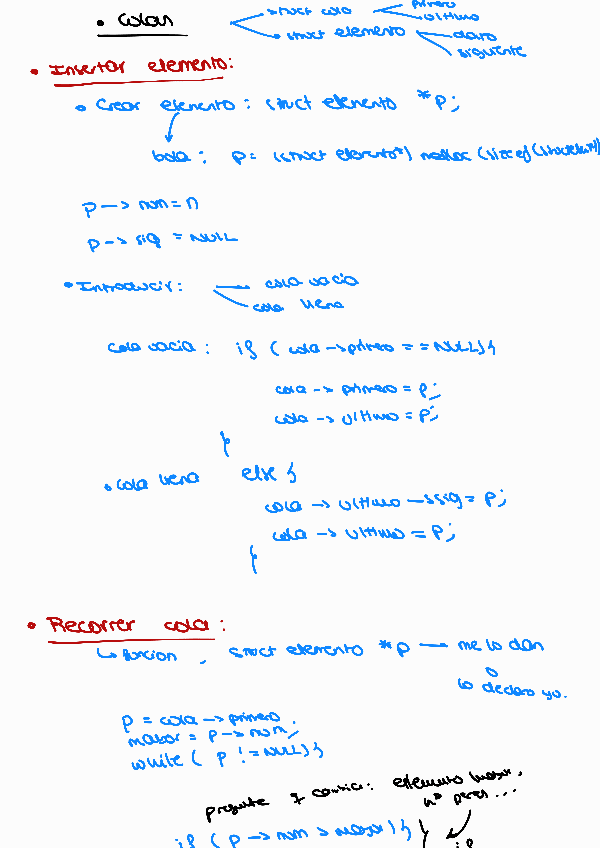 • Colas
struct cola
primero
ultimo
• struct elemento
dato
siguiente
• Insertar elemento:
• Crear elemento: struct elemento *p;
bola: p= (struct elemento*) malloc (sizeof(struct
p -> num = n
p -> sig = NULL
• Introducir:
cola vacia
cola llena
cola vacia: if ( cola ->primero == NULL){
cola -> primero = p;
cola -> ultimo = p;
}
• cola llena else {
cola -> ultimo ->sig = p;
cola -> ultimo = p;
}
• Recorrer cola:
↳ funcion, struct elemento *p — me lo dan
o
lo declaro yo.
p = cola ->primero.
mayor = p -> num;
while ( p != NULL) {
pregunte q cambia: elemento mayor,
nº pares ...
if ( p -> num > mayor) { } if